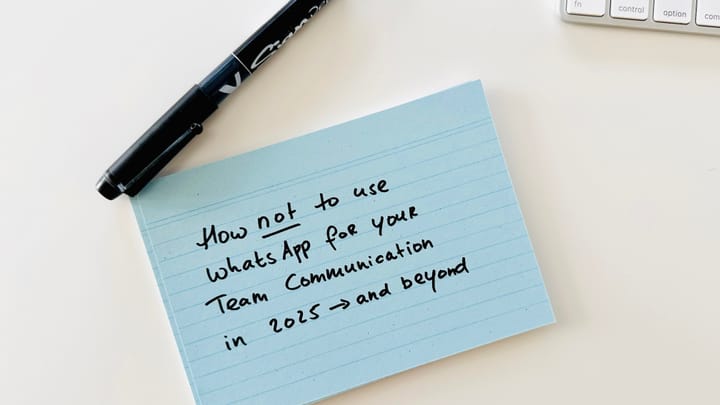 How not to use
WhatsApp for your
Team Communication
in 2025 → and beyond
fn
control
option
com